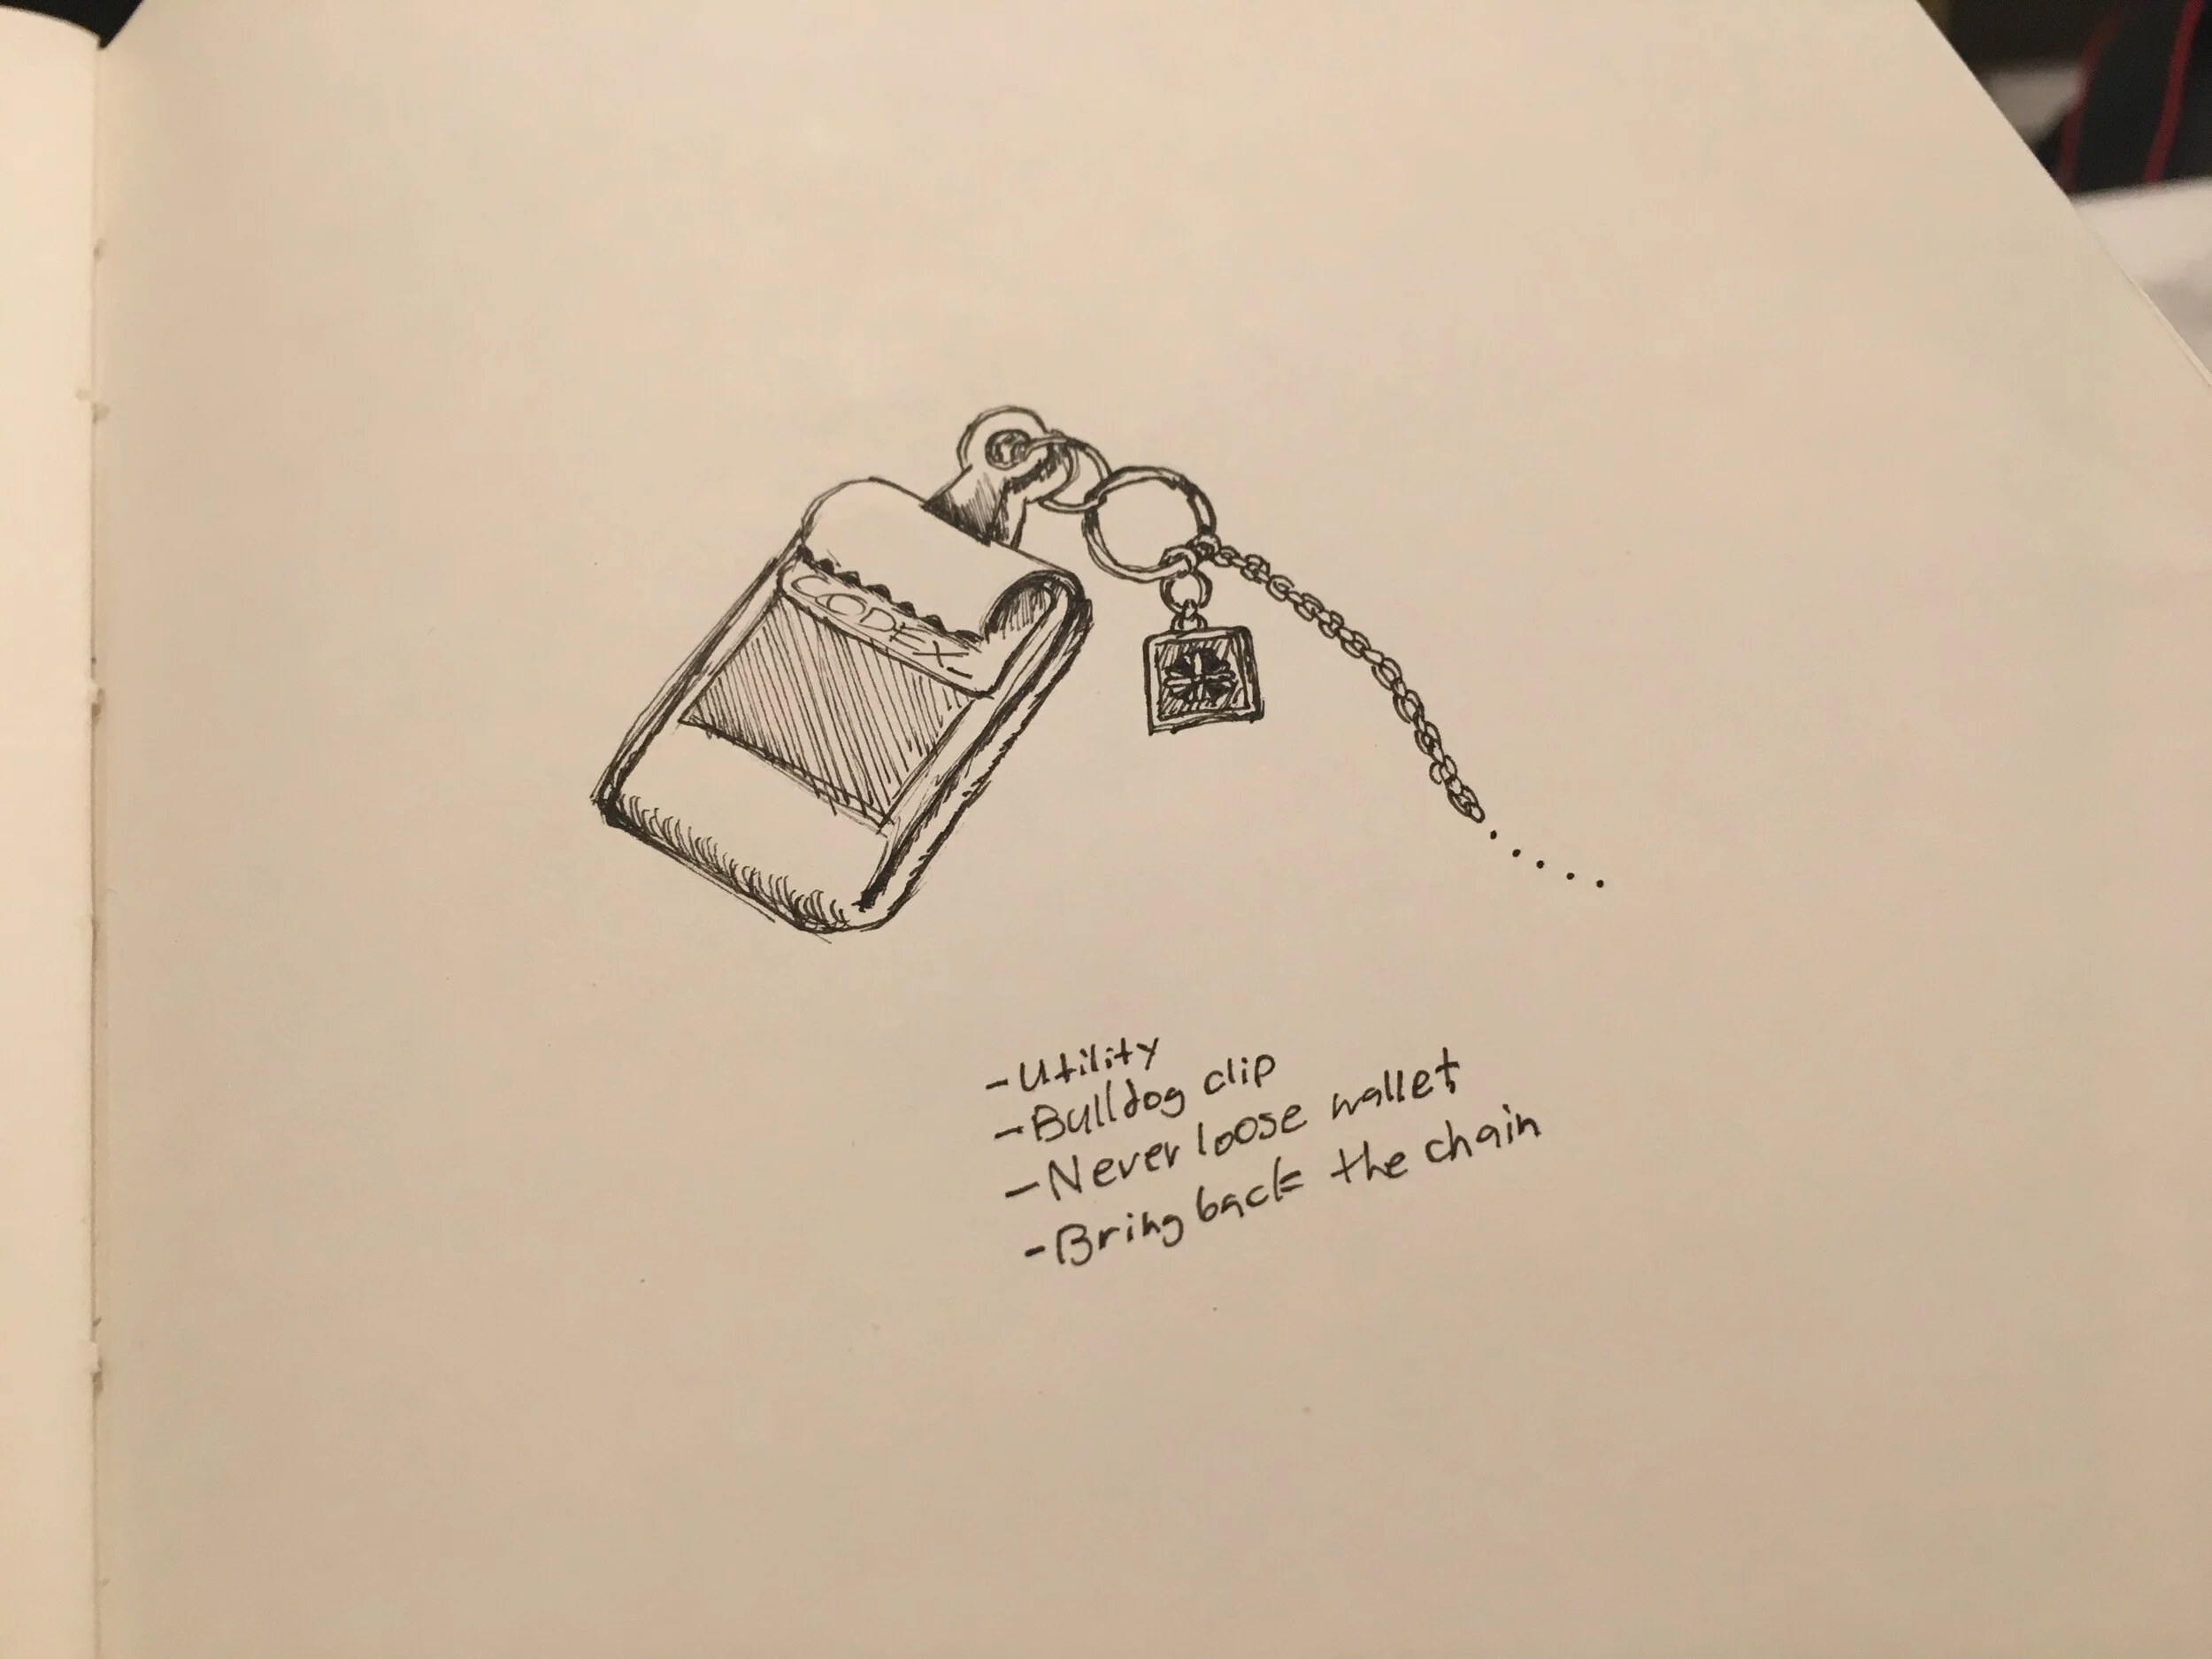 CODEX
-Utility
-Bulldog clip
-Never loose wallet
-Bring back the chain